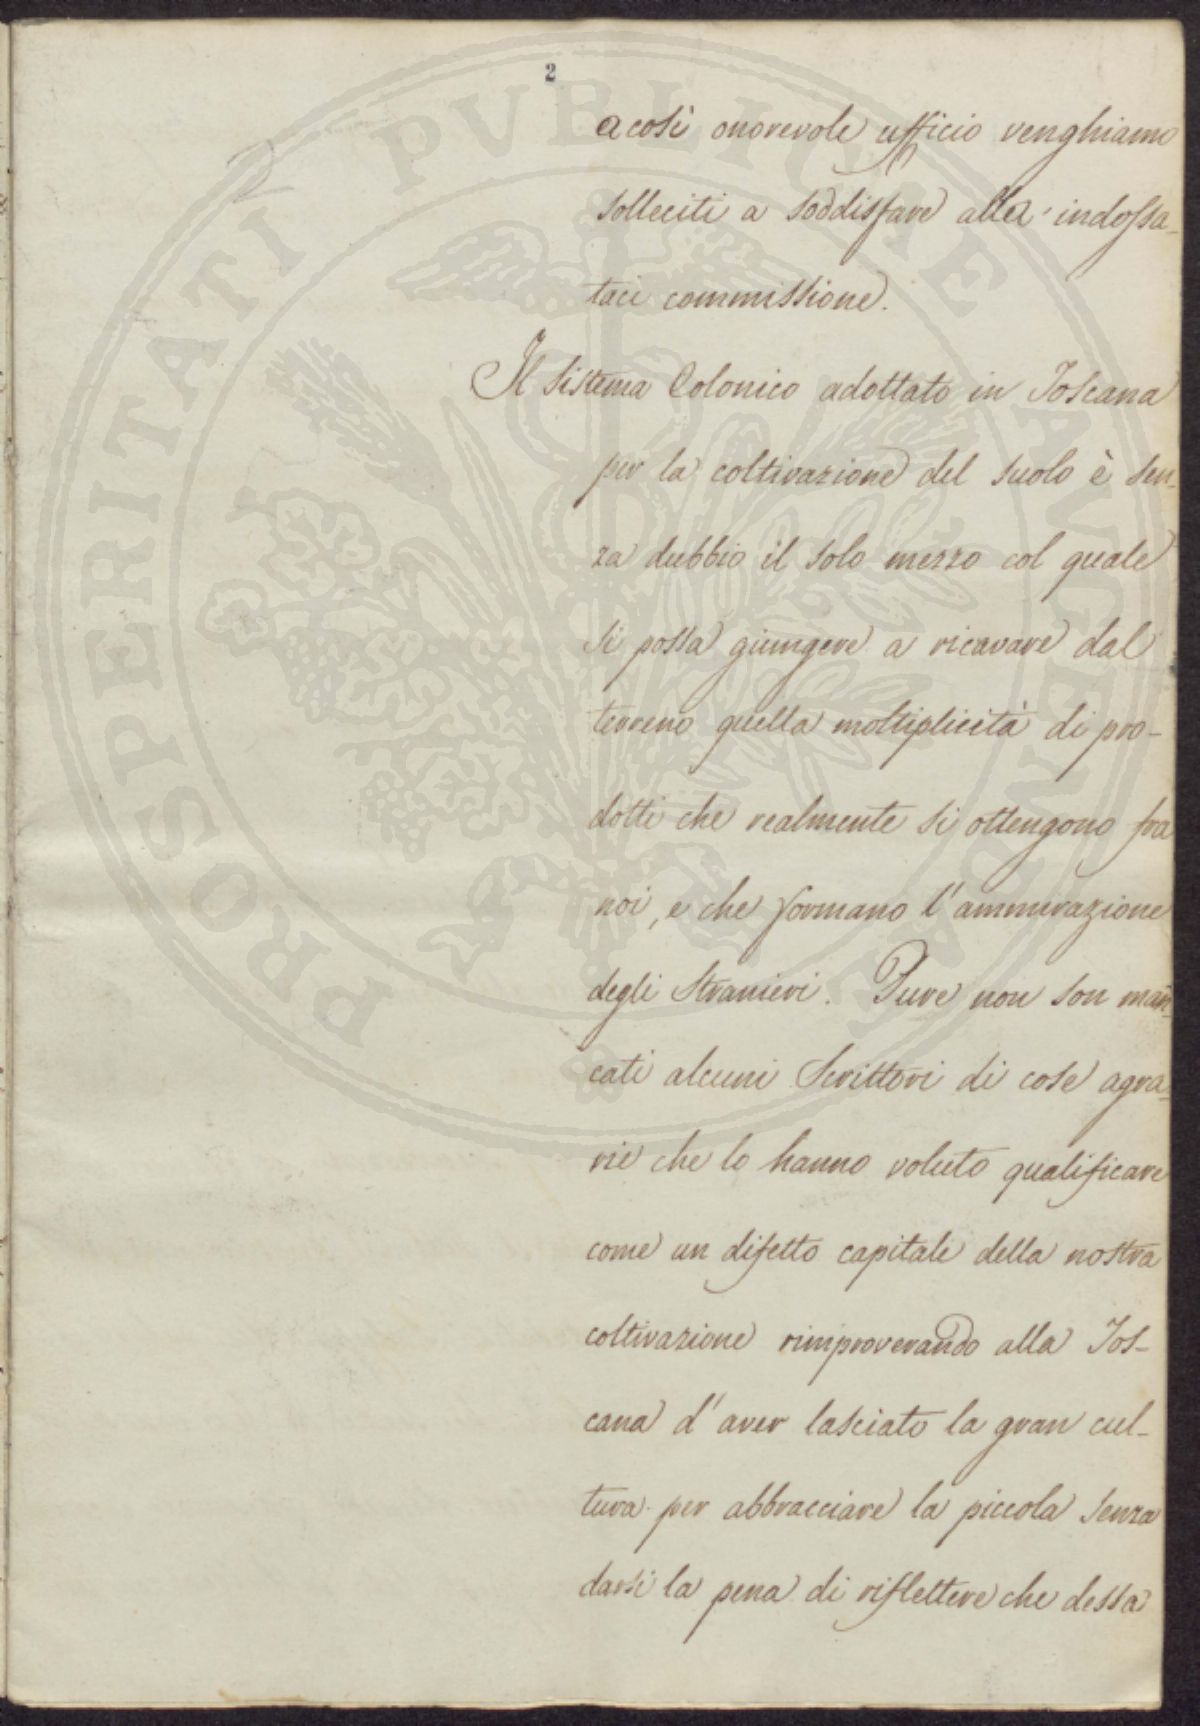 2
a così onorevole ufficio venghiamo
solleciti a soddisfare alla indossa-
taci commissione.
Il Sistema Colonico adottato in Toscana
per la coltivazione del suolo è sen-
za dubbio il solo mezzo col quale
si possa giungere a ricavare dal
terreno quella moltiplicità di pro-
dotti che realmente si ottengono fra
noi, e che formano l'ammirazione
degli Stranieri. Pure non son man-
cati alcuni Scrittori di cose agra-
rie che lo hanno voluto qualificare
come un difetto capitale della nostra
coltivazione rimproverando alla Tos-
cana d'aver lasciato la gran cul-
tura per abbracciare la piccola senza
darsi la pena di riflettere che dessa
PROSPERITATI PUBLICAE AUGENDAE